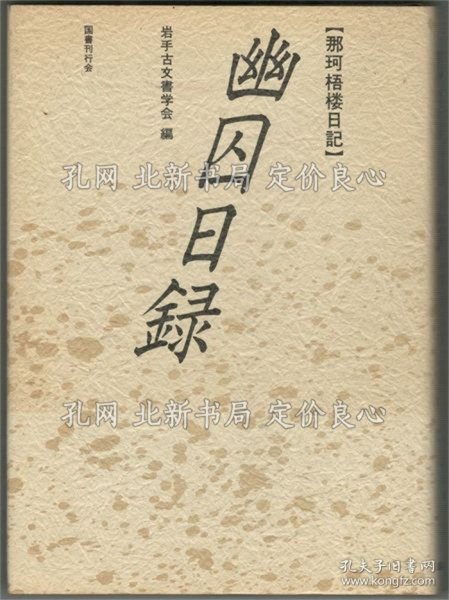 【那珂梧楼日記】
幽囚日録
岩手古文書学会 編
国書刊行会
孔网 北新书局 定价良心
孔网 北新书局 定价良心
孔网 北新书局 定价良心
孔夫子旧书网
www.kongfz.com